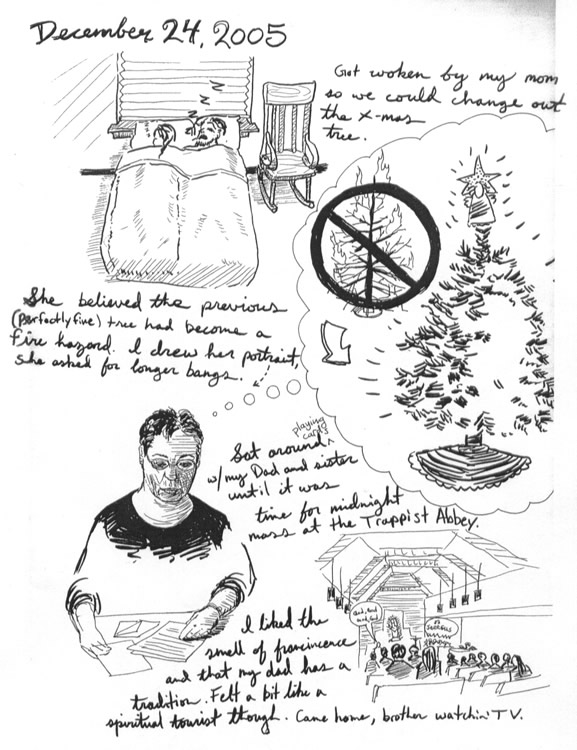 December 24, 2005
Got woken by my mom
so we could change out
the X-mas
tree.
She believed the previous
(perfectly fine) tree had become a
fire hazard. I drew her portrait,
she asked for longer bangs.
playing
cards
Sat around
w/my Dad and sister
until it was
time for midnight
mass at the Trappist Abbey.
I liked the
smell of francincence
and that my dad has a
tradition. Felt a bit like a
spiritual tourist though. Came home, brother watchin' TV.
z
z
z
z